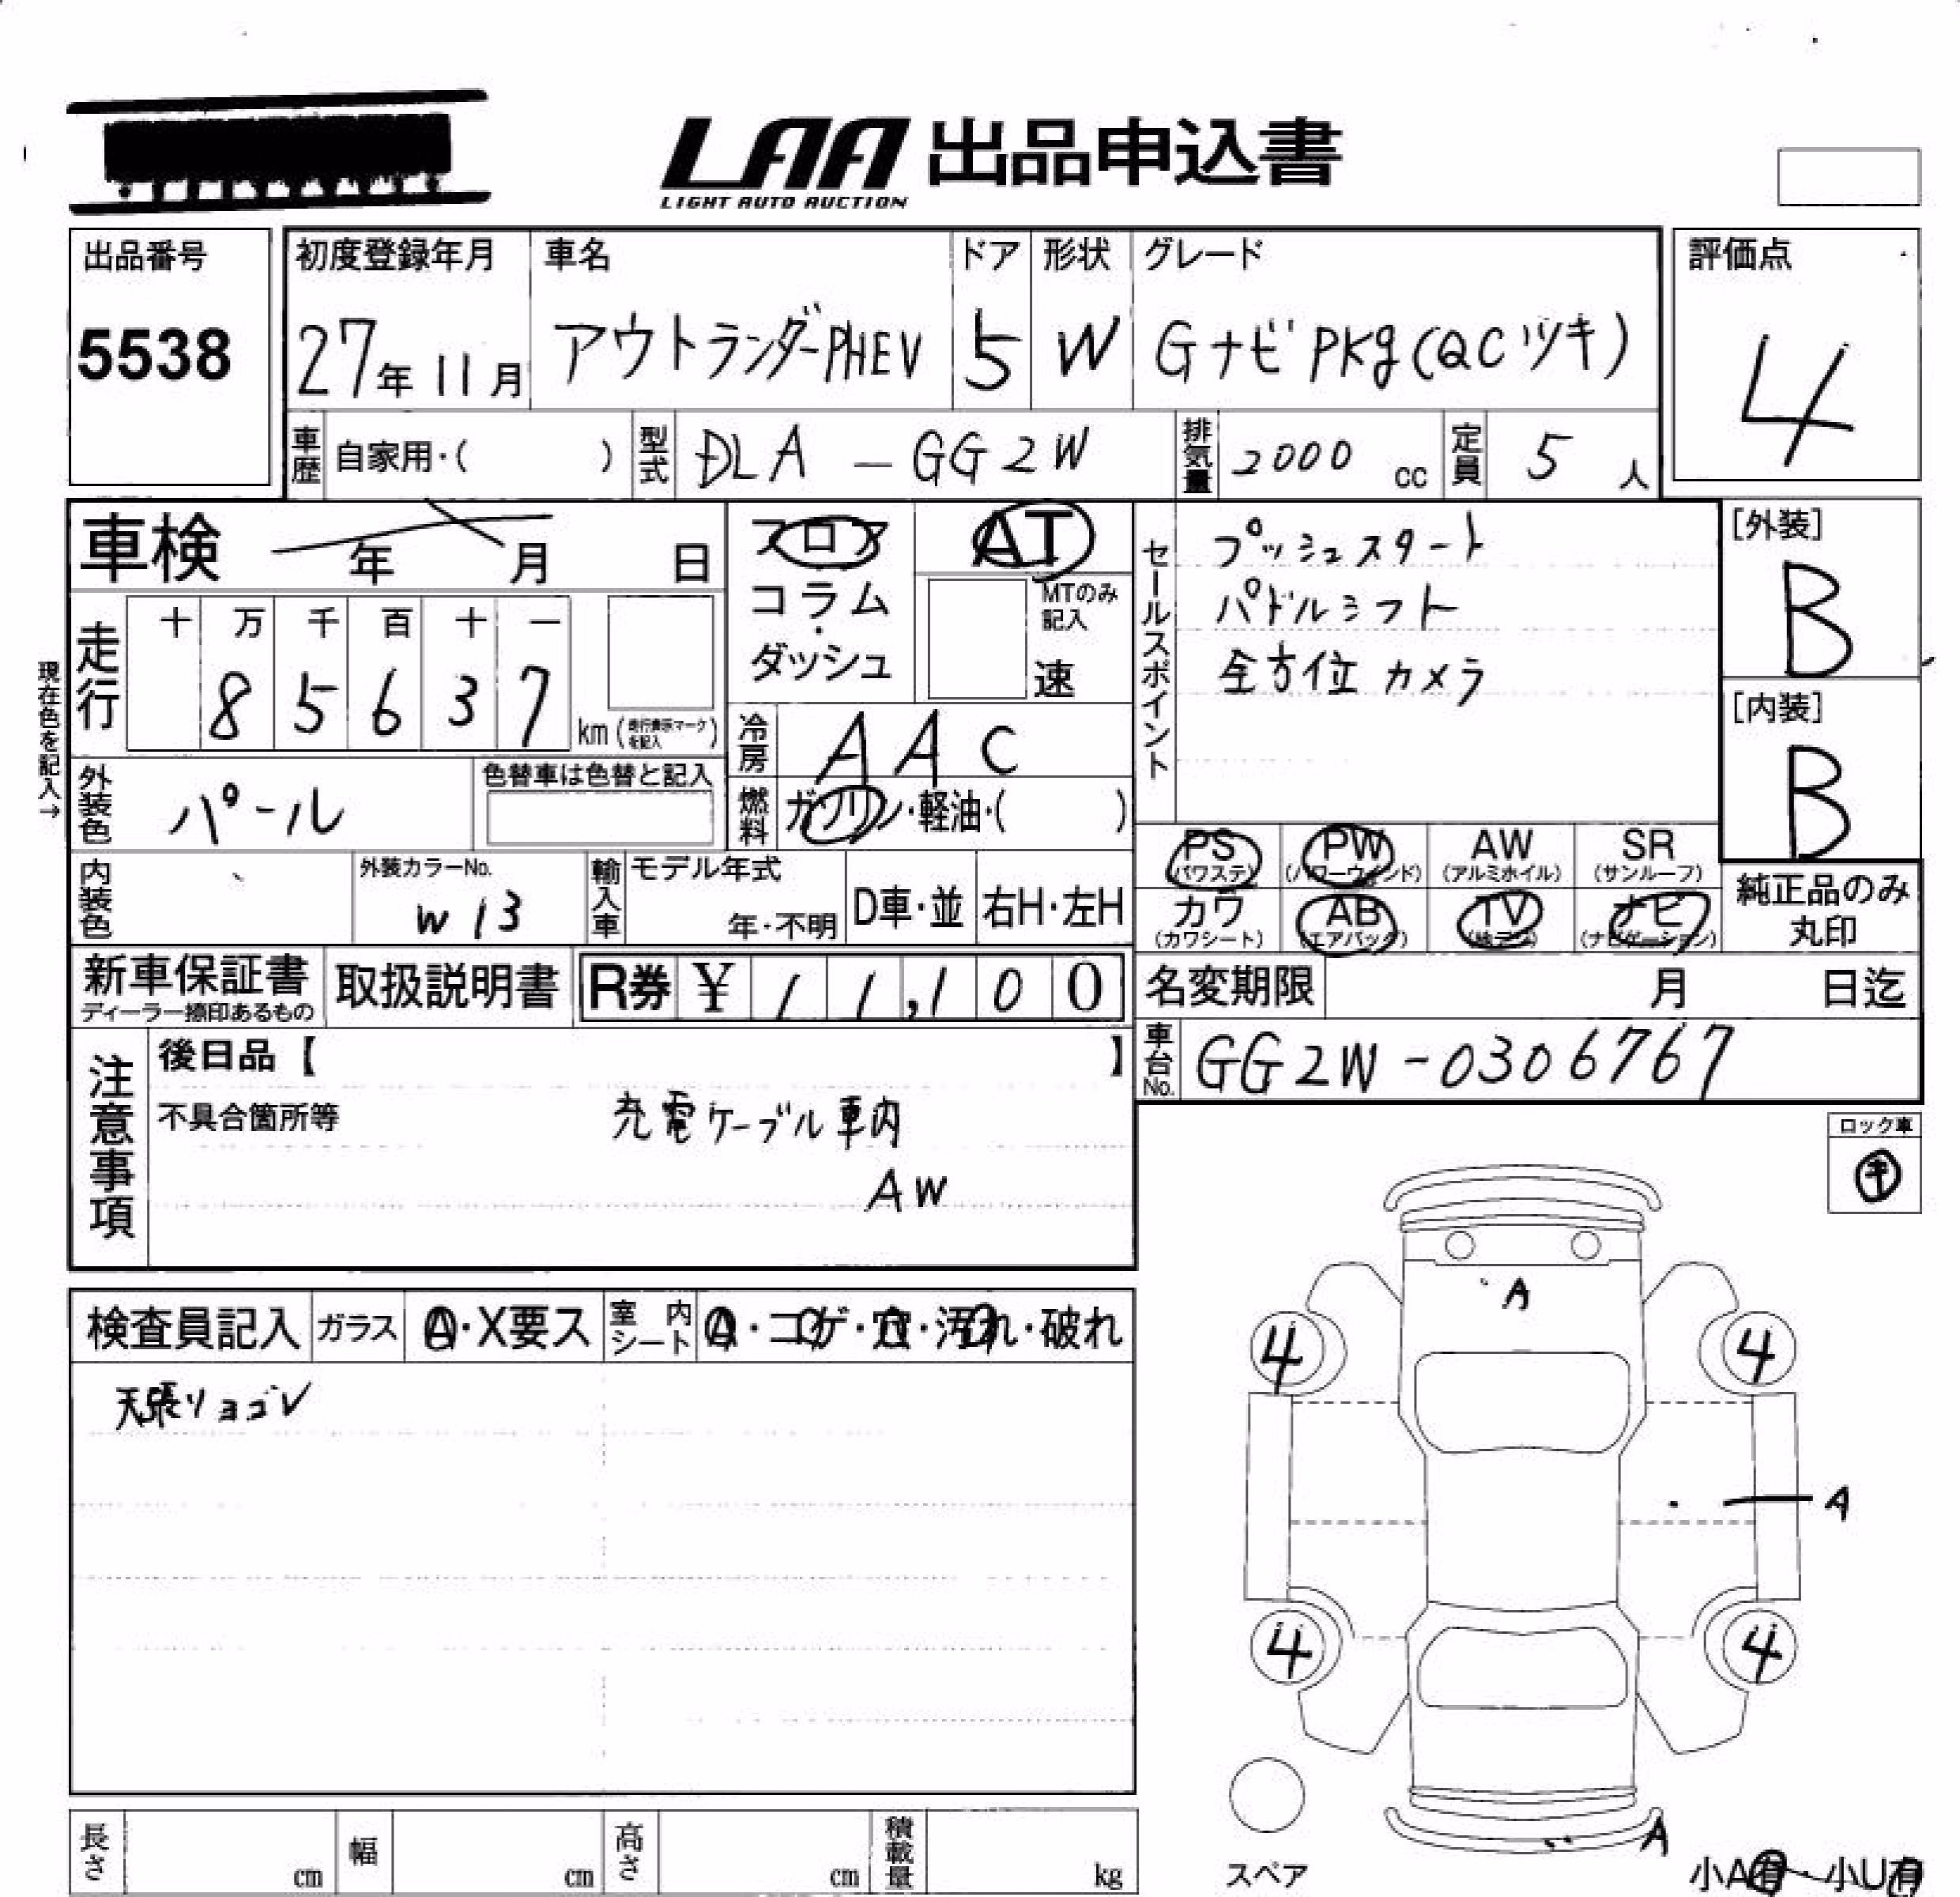 LAA 出品申込書
LIGHT AUTO AUCTION
出品番号
5538
初度登録年月
27年11月
車名
アウトランダーPHEV
ドア
5
形状
W
グレード
Gナビ PKg(QCツキ)
評価点
4
車歴 自家用・( )
型式 DLA - GG2W
排気量 2000 cc
定員 5 人
車検 年 月 日
フロア
コラム
・
ダッシュ
AT
MTのみ
記入
速
セールスポイント
プッシュスタート
パドルシフト
全方位カメラ
[外装]
B
[内装]
B
現在色を記入→
走行
十 万 千 百 十 一
8 5 6 3 7
km (走行表示マークを記入)
冷房 AAC
燃料 ガソリン・軽油・( )
外装色 パール
色替車は色替と記入
内装色
外装カラーNo.
W13
輸入車
モデル年式
年・不明
D車・並
右H・左H
PS (パワステ)
PW (パワーウィンド)
AW (アルミホイル)
SR (サンルーフ)
カワ (カワシート)
AB (エアバック)
TV (地デジ)
ナビ (ナビゲーション)
純正品のみ
丸印
新車保証書
ディーラー捺印あるもの
取扱説明書
R券 ¥ 11,100
名変期限 月 日迄
車台No. GG2W-0306767
注意事項
後日品【 】
不具合箇所等
充電ケーブル車内
AW
ロック車
キ
検査員記入
ガラス A・X要ス
室内シート A・コゲ・穴・汚れ・破れ
天張リヨゴレ
A
4
4
A
4
4
A
スペア
小A有・小U有
長さ cm
幅 cm
高さ cm
積載量 kg